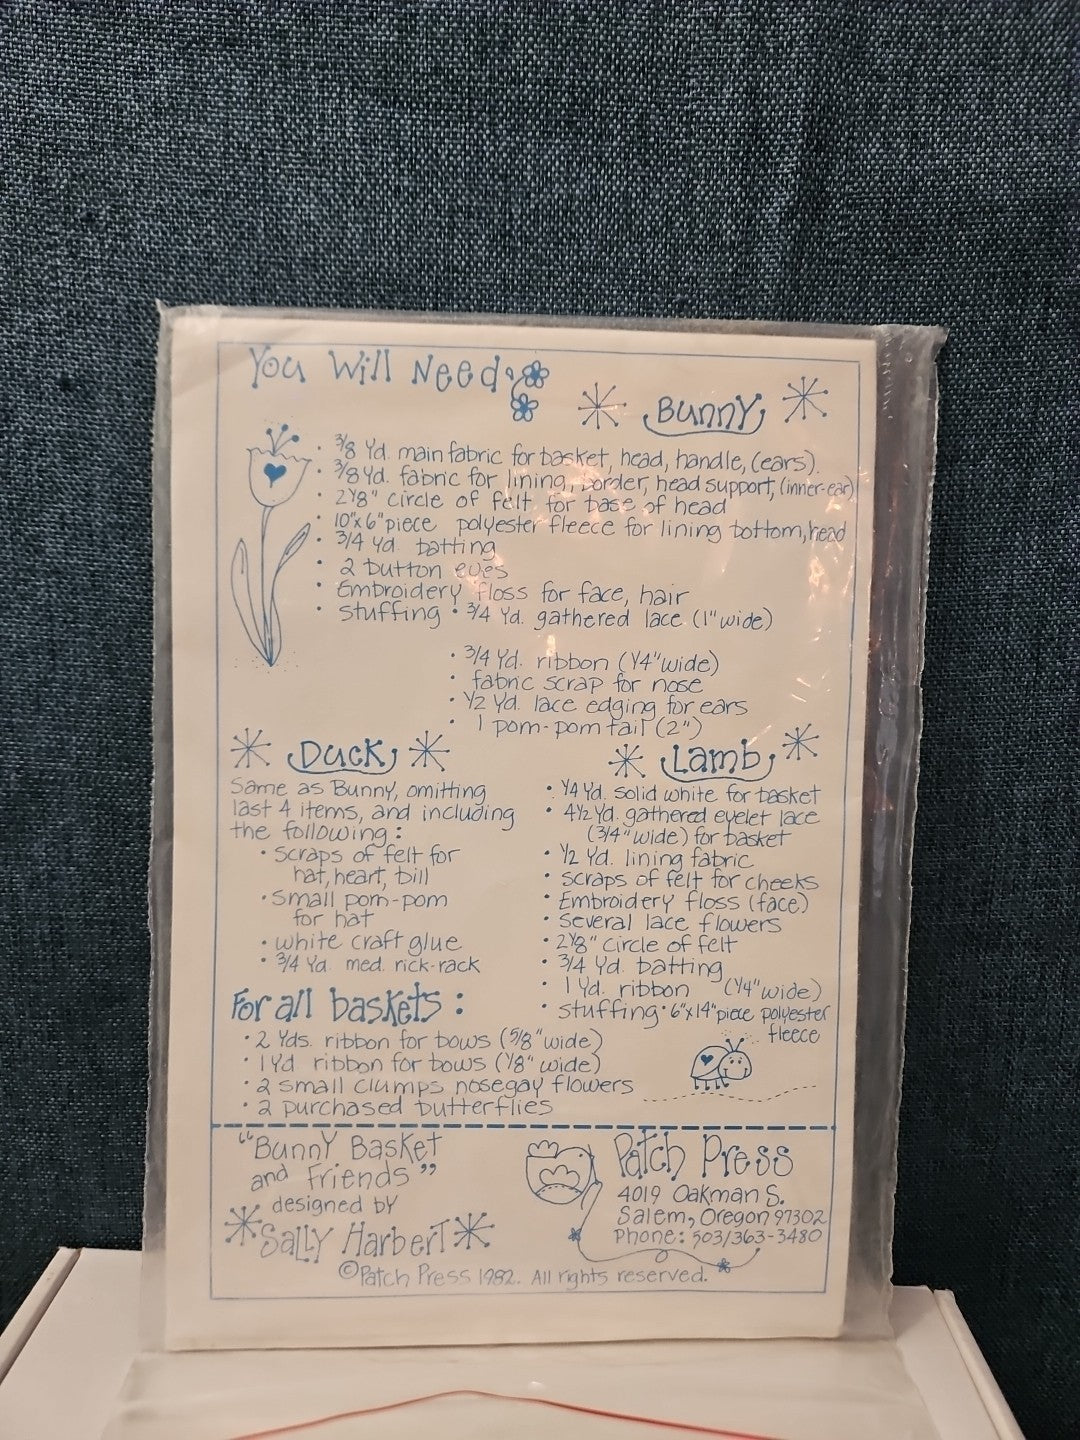 You Will Need:
Bunny
• 3/8 Yd. main fabric for basket, head, handle, (ears).
• 3/8 Yd. fabric for lining, border, head support, (inner-ear)
• 2 1/8" circle of felt for base of head
• 10"x 6" piece polyester fleece for lining bottom, head
• 3/4 Yd. batting
• 2 button eyes
• Embroidery floss for face, hair
• stuffing • 3/4 Yd. gathered lace (1" wide)
• 3/4 Yd. ribbon (1/4" wide)
• fabric scrap for nose
• 1/2 Yd. lace edging for ears
• 1 pom-pom tail (2")
Duck
Same as Bunny, omitting
last 4 items, and including
the following:
• scraps of felt for
hat, heart, bill
• small pom-pom
for hat
• white craft glue
• 3/4 Yd. med. rick-rack
Lamb
• 1/4 Yd. solid white for basket
• 4 1/2 Yd. gathered eyelet lace
(3/4" wide) for basket
• 1/2 Yd. lining fabric
• scraps of felt for cheeks
• Embroidery floss (face)
• Several lace flowers
• 2 1/8" circle of felt
• 3/4 Yd. batting
• 1 Yd. ribbon (1/4" wide)
• stuffing • 6"x14" piece polyester
fleece
For all baskets:
• 2 Yds. ribbon for bows (5/8" wide)
• 1 Yd. ribbon for bows (1/8" wide)
• 2 small clumps nosegay flowers
• 2 purchased butterflies
"Bunny Basket
and Friends"
designed by
Sally Harbert
Patch Press
4019 Oakman S.
Salem, Oregon 97302
Phone: 503/363-3480
©Patch Press 1982. All rights reserved.